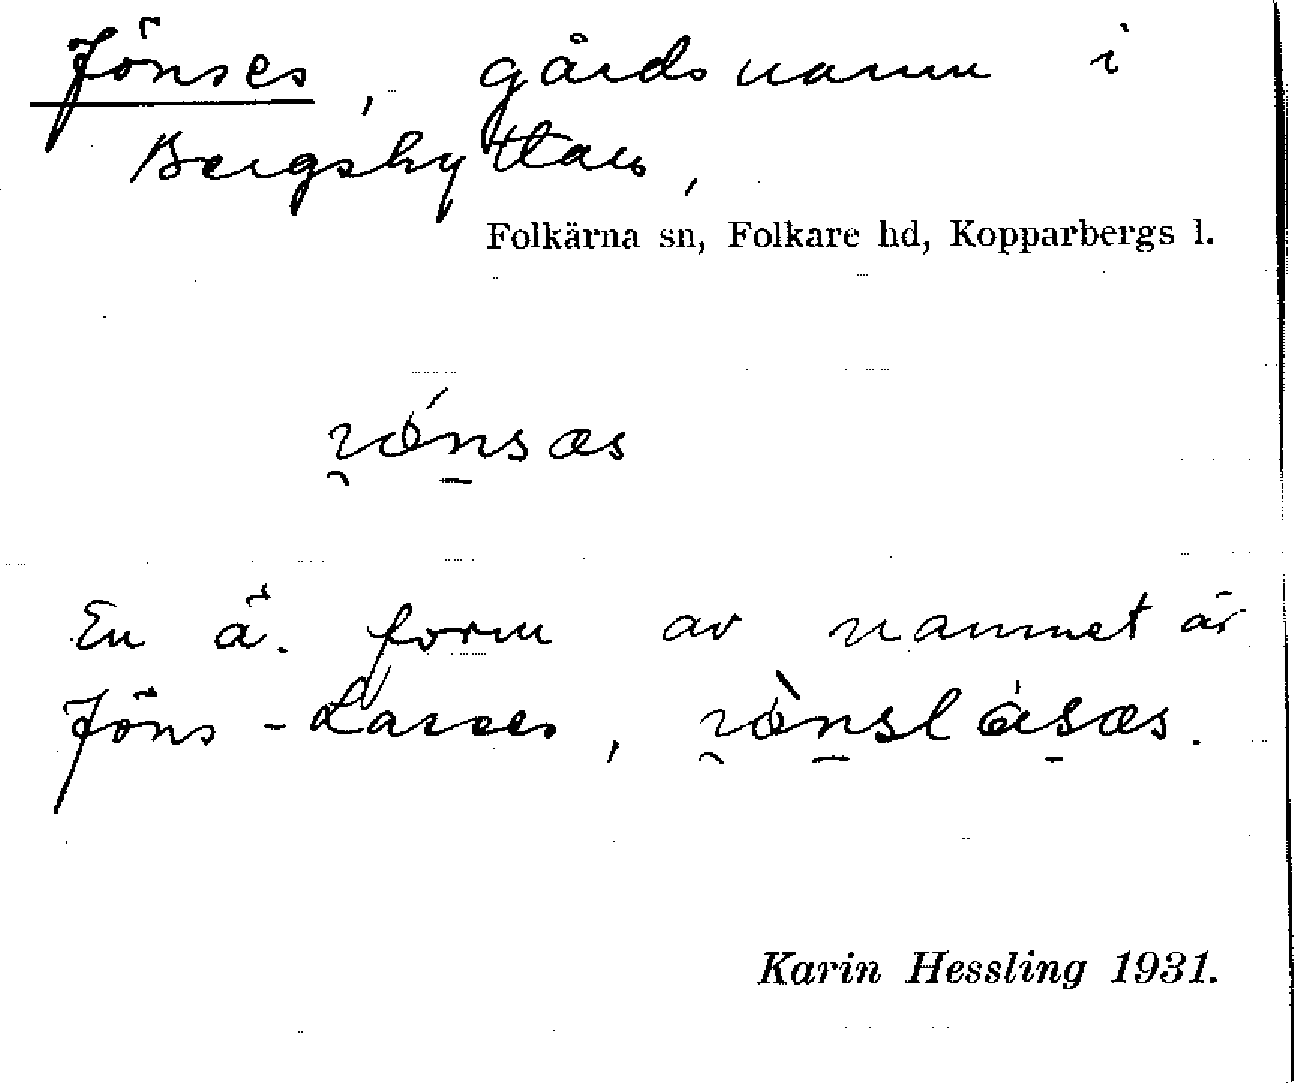 Jönses, gårdsnamn i
Bergshyttan,
Folkärna sn, Folkare hd, Kopparbergs l.
En ä. form av namnet är
Jöns-Lasses,
Karin Hessling 1931.